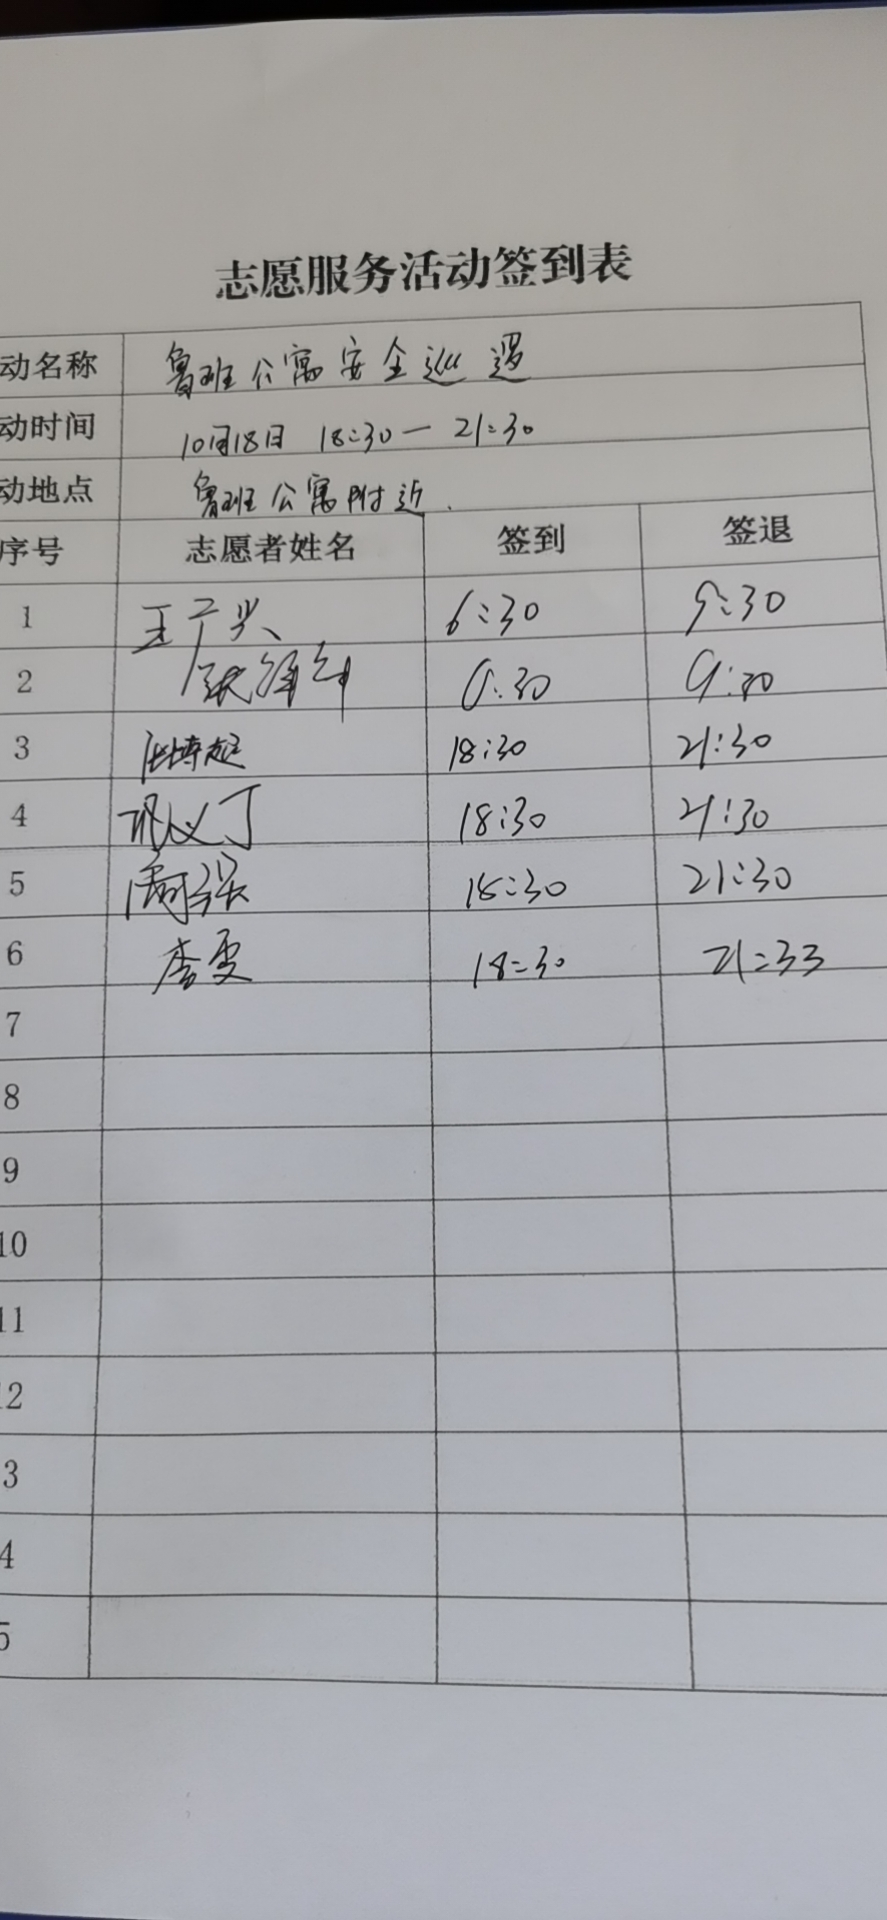 志愿服务活动签到表
动名称 鲁班公寓安全巡逻
动时间 10月18日 18:30一21:30
动地点 鲁班公寓附近.
序号 志愿者姓名 签到 签退
1 王广兴 6:30 9:30
2 6:30 9:30
3 18:30 21:30
4 18:30 21:30
5 18:30 21:30
6 李雯 18:30 21:33
7
8
9
10
11
12
3
4
5